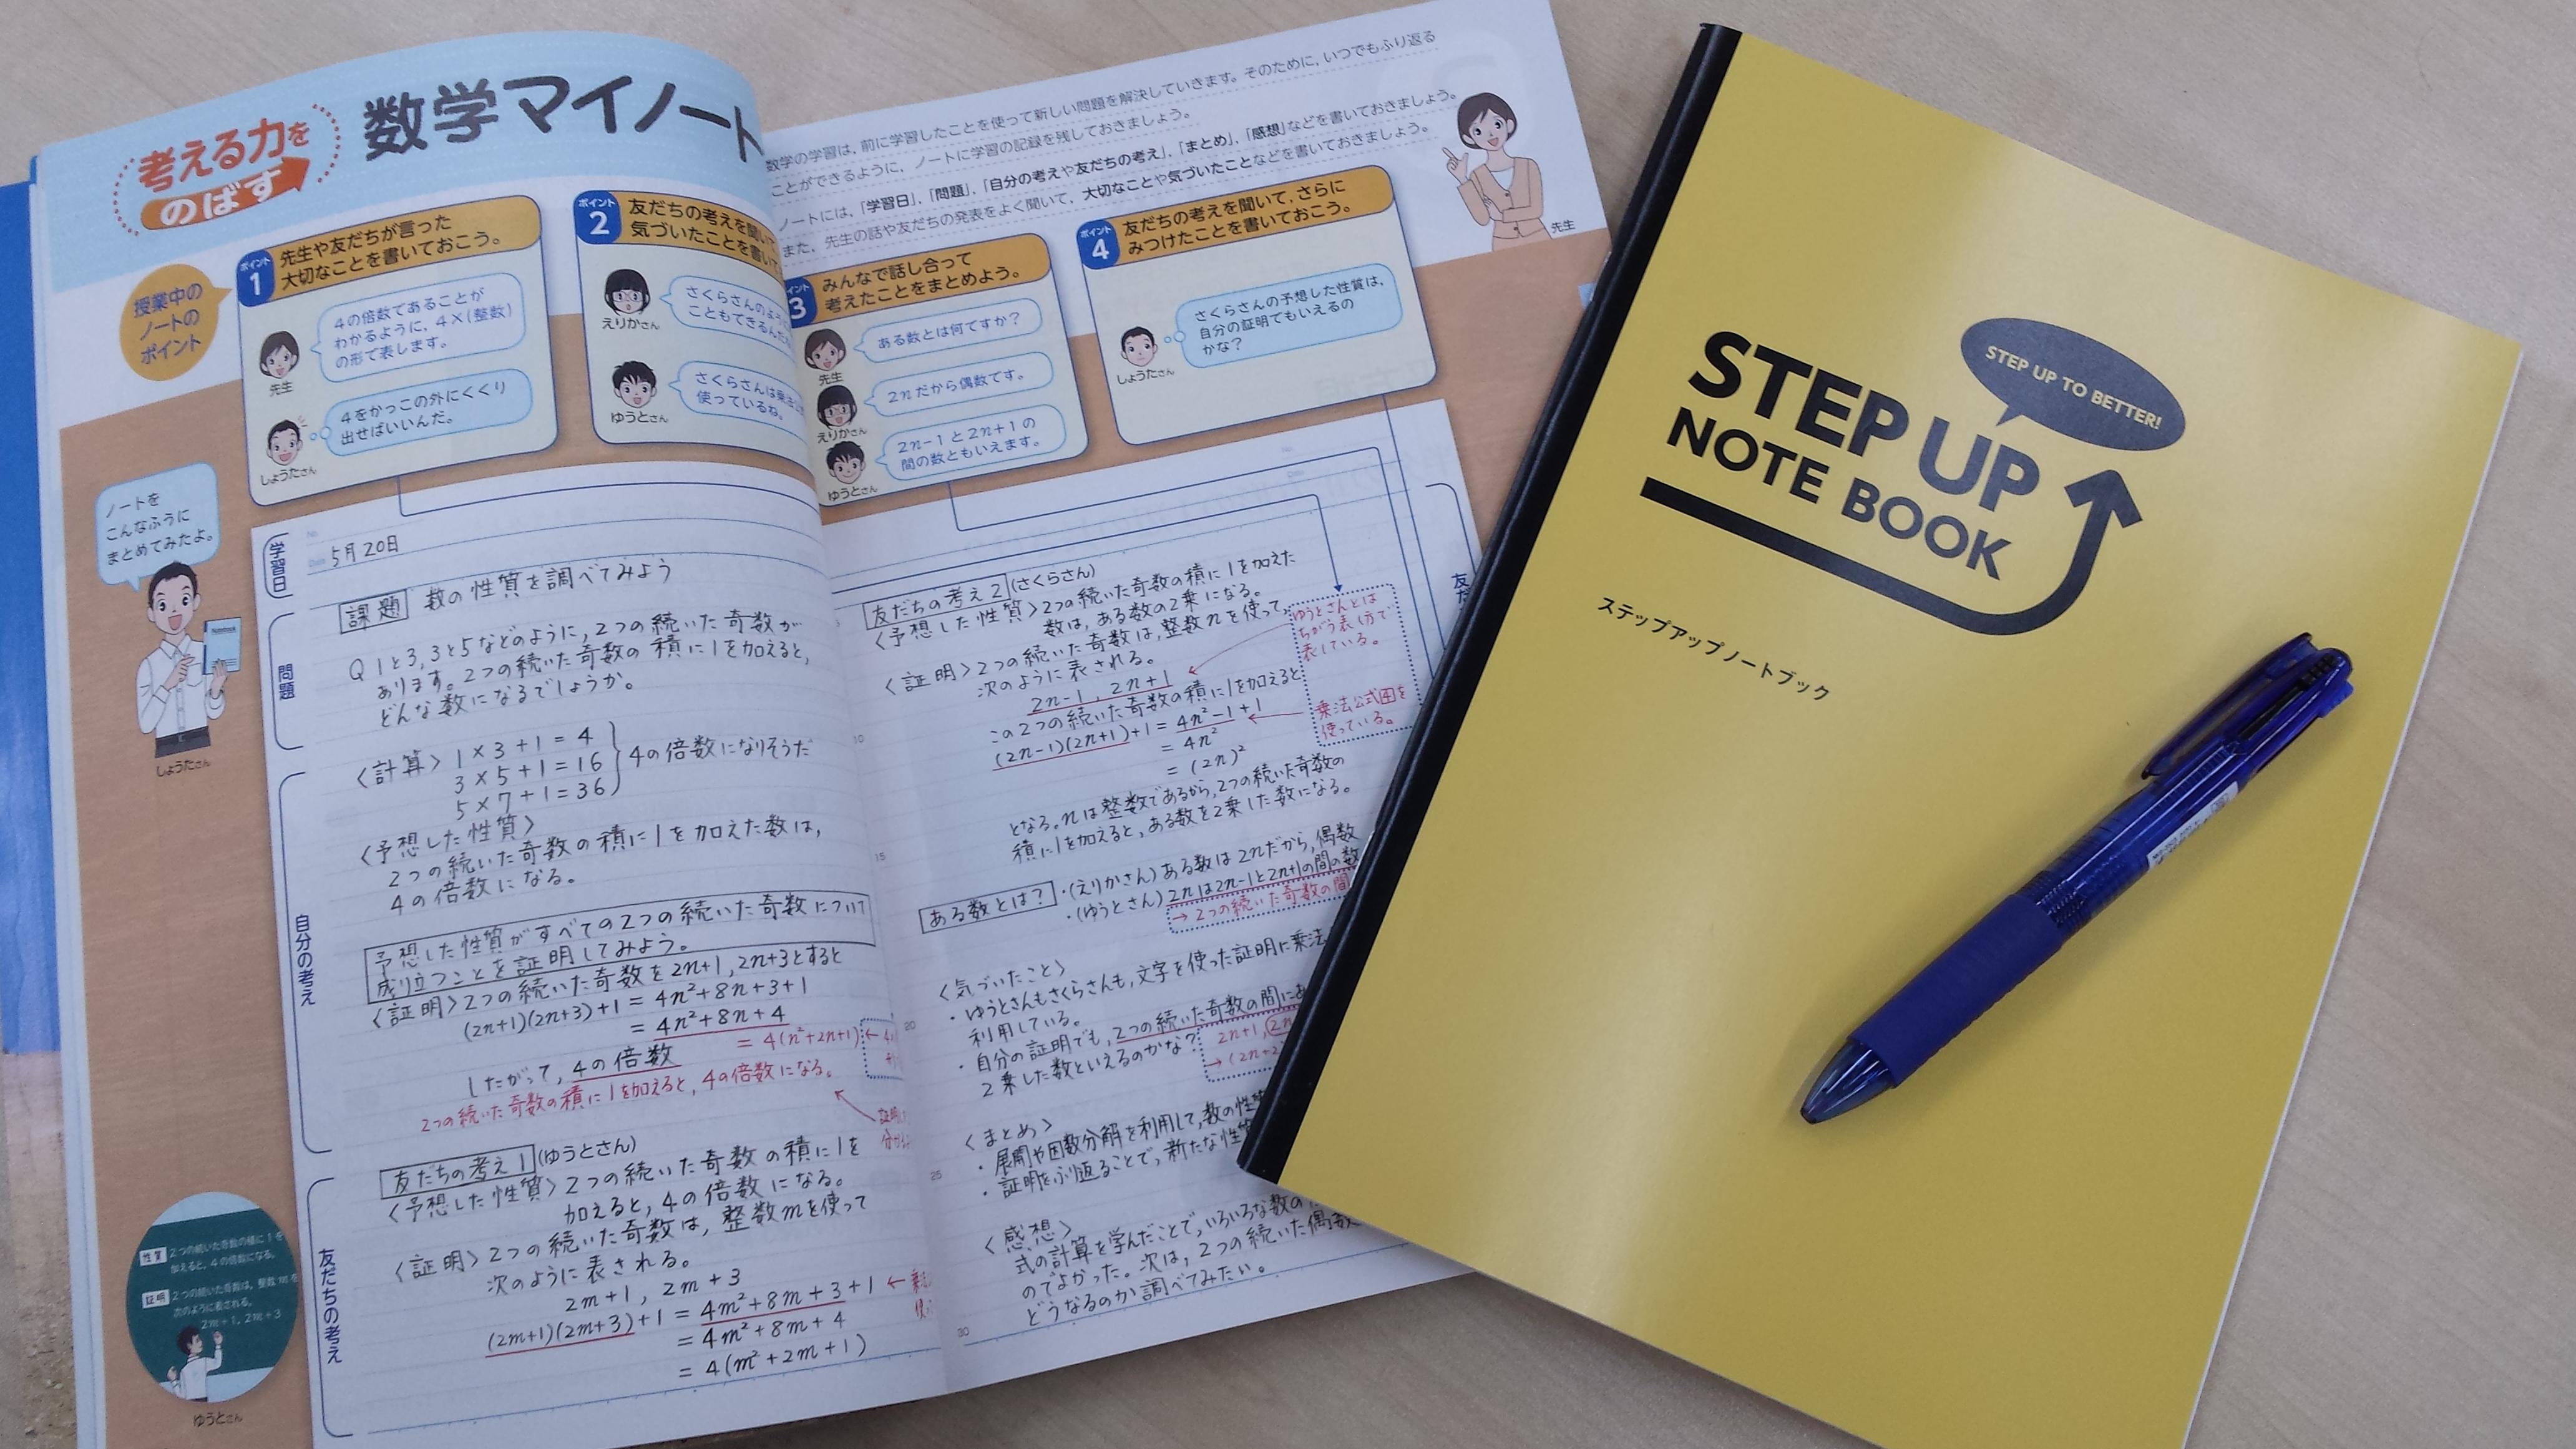 考える力を
のばす
数学マイノート
数学の学習は，前に学習したことを使って新しい問題を解決していきます。そのために，いつでもふり返る
ことができるように，ノートに学習の記録を残しておきましょう。
ノートには，「学習日」，「問題」，「自分の考えや友だちの考え」，「まとめ」，「感想」などを書いておきましょう。
また，先生の話や友だちの発表をよく聞いて，大切なことや気づいたことなどを書いておきましょう。
先生
授業中の
ノートの
ポイント
ポイント
1
先生や友だちが言った
大切なことを書いておこう。
4の倍数であることが
わかるように，4×(整数)
の形で表します。
先生
4をかっこの外にくくり
出せばいいんだ。
しょうたさん
ポイント
2
友だちの考えを聞いて
気づいたことを書いて
さくらさんのよ
こともできるんだ
えりかさん
さくらさんは乗法
使っているね。
ゆうとさん
イント
3
みんなで話し合って
考えたことをまとめよう。
ある数とは何ですか？
先生
2nだから偶数です。
えりかさん
2n−1と2n+1の
間の数ともいえます。
ゆうとさん
ポイント
4
友だちの考えを聞いて，さらに
みつけたことを書いておこう。
さくらさんの予想した性質は，
自分の証明でもいえるの
かな？
しょうたさん
ノートを
こんなふうに
まとめてみたよ。
Notebook
しょうたさん
学習日
No.
Date 5月20日
問題
課題 数の性質を調べてみよう
Q 1と3，3と5などのように，2つの続いた奇数が
あります。2つの続いた奇数の積に1を加えると，
どんな数になるでしょうか。
自分の考え
〈計算〉1×3+1=4
3×5+1=16
5×7+1=36
4の倍数になりそうだ
〈予想した性質〉
2つの続いた奇数の積に1を加えた数は，
4の倍数になる。
予想した性質がすべての2つの続いた奇数について
成り立つことを証明してみよう。
〈証明〉2つの続いた奇数を2n+1，2n+3とすると
(2n+1)(2n+3)+1=4n²+8n+3+1
=4n²+8n+4
=4(n²+2n+1)
したがって，4の倍数
2つの続いた奇数の積に1を加えると，4の倍数になる。
友だちの考え
友だちの考え1(ゆうとさん)
〈予想した性質〉2つの続いた奇数の積に1を
加えると，4の倍数になる。
〈証明〉2つの続いた奇数は，整数mを使って
次のように表される。
2m+1，2m+3
(2m+1)(2m+3)+1=4m²+8m+3+1
=4m²+8m+4
=4(m²+2m+1)
性質 2つの続いた奇数の積に1を
加えると，4の倍数になる。
証明 2つの続いた奇数は，整数mを
次のように表される。
2m+1，2m+3
ゆうとさん
No.
Date
友だ
友だちの考え2(さくらさん)
〈予想した性質〉2つの続いた奇数の積に1を加えた
数は，ある数の2乗になる。
〈証明〉2つの続いた奇数は，整数nを使って，
次のように表される。
2n−1，2n+1
この2つの続いた奇数の積に1を加えると
(2n−1)(2n+1)+1=4n²−1+1
=4n²
=(2n)²
ゆうとさんとは
ちがう表し方で
表している。
乗法公式4を
使っている。
となる。nは整数であるから，2つの続いた奇数の
積に1を加えると，ある数を2乗した数になる。
ある数とは？
・(えりかさん)ある数は2nだから，偶数
・(ゆうとさん)2nは2n−1と2n+1の間の数
→2つの続いた奇数の間
〈気づいたこと〉
・ゆうとさんもさくらさんも，文字を使った証明に乗法
利用している。
・自分の証明でも，2つの続いた奇数の間にあ
2乗した数といえるのかな？
2n+1，
〈まとめ〉
・展開や因数分解を利用して，数の性
・証明をふり返ることで，新たな性
〈感想〉
式の計算を学んだことで，いろいろな数の
のでよかった。次は，2つの続いた偶数
どうなるのか調べてみたい。
10
15
20
25
30
STEP UP TO BETTER!
STEP UP
NOTE BOOK
ステップアップノートブック